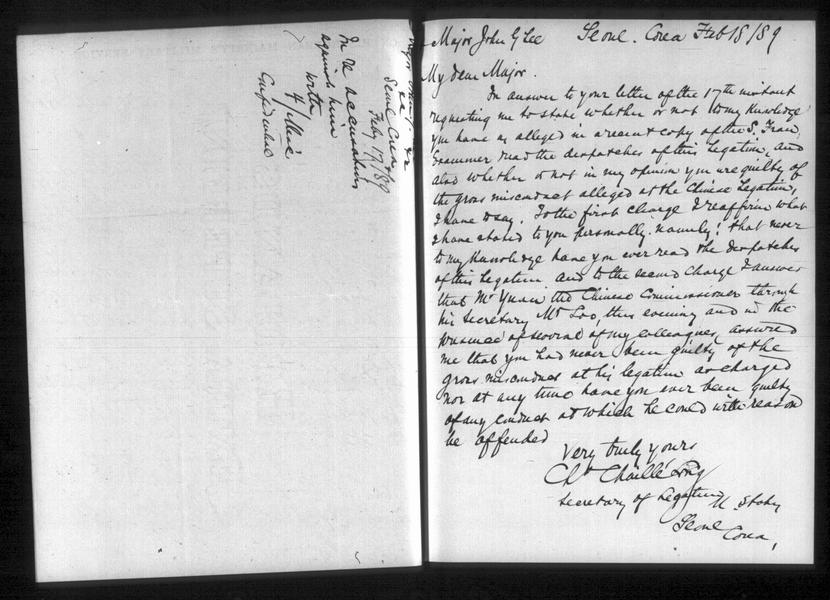 Major John G Lee
Seoul Corea
Feby 17/89
In re accusations
against him
with
Confidential
Major John G Lee Seoul. Corea Feb 18/89
My dear Major.
In answer to your letter of the 17th instant
requesting me to state whether or not to my knowledge
you have as alleged in a recent copy of the S. Fran.
Examiner read the despatches of this Legation, and
also whether or not in my opinion you are guilty of
the gross misconduct alleged at the Chinese Legation,
I have to say. To the first charge I reaffirm what
I have stated to you personally. namely: that never
to my knowledge have you ever read the despatches
of this Legation and to the second charge I answer
that Mr Yuan the Chinese Commissioner through
his Secretary Mr Loo, this evening and in the
presence of several of my colleagues, assured
me that you had never been guilty of the
gross misconduct at his legation as charged
nor at any time have you ever been guilty
of any conduct at which he could with reason
be offended
Very truly yours
Ch Chaillé Long
Secretary of Legation U. States
Seoul
Corea,